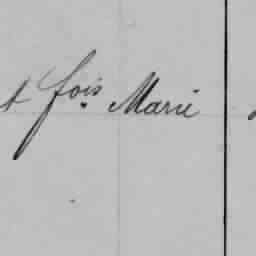 t fois Marie